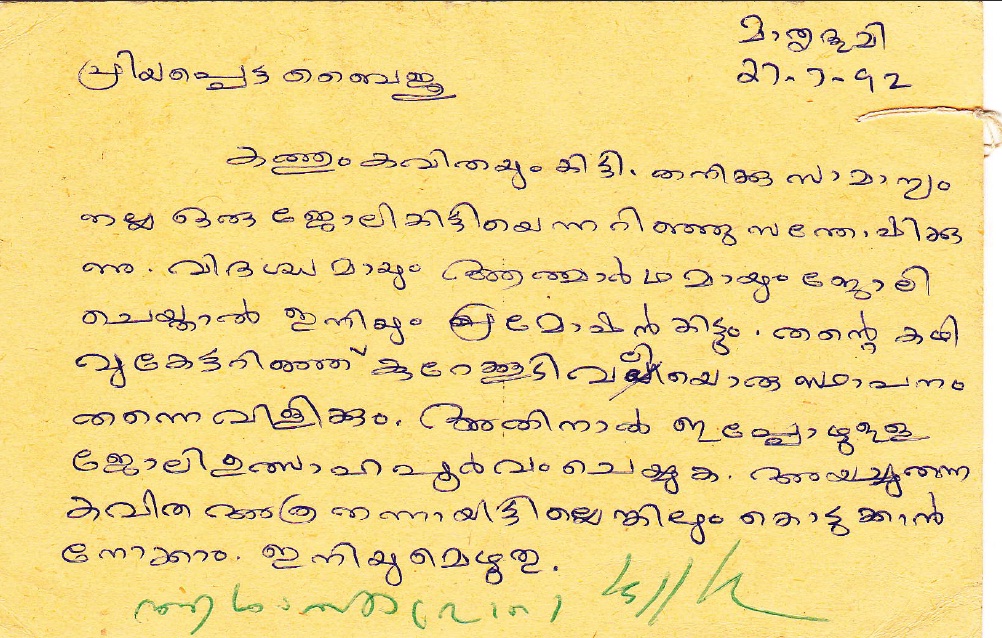 മാതൃഭൂമി
27-7-92
പ്രിയപ്പെട്ട ബൈജു
കത്തും കവിതയും കിട്ടി. തനിക്കു സാമാന്യം
നല്ല ഒരു ജോലികിട്ടിയെന്നറിഞ്ഞു സന്തോഷിക്കു
ന്നു. വിദഗ്ദ്ധമായും ആത്മാർഥമായും ജോലി
ചെയ്താൽ ഇനിയും പ്രമോഷൻ കിട്ടും. തന്റെ കഴി
വുകേട്ടറിഞ്ഞ് കുറേക്കൂടി വലിയൊരു സ്ഥാപനം
തന്നെ വിളിക്കും. അതിനാൽ ഇപ്പോഴുള്ള
ജോലി ഉത്സാഹപൂർവം ചെയ്യുക. അയച്ചുതന്ന
കവിത അത്ര നന്നായിട്ടില്ലെങ്കിലും കൊടുക്കാൻ
നോക്കാം. ഇനിയുമെഴുതൂ.